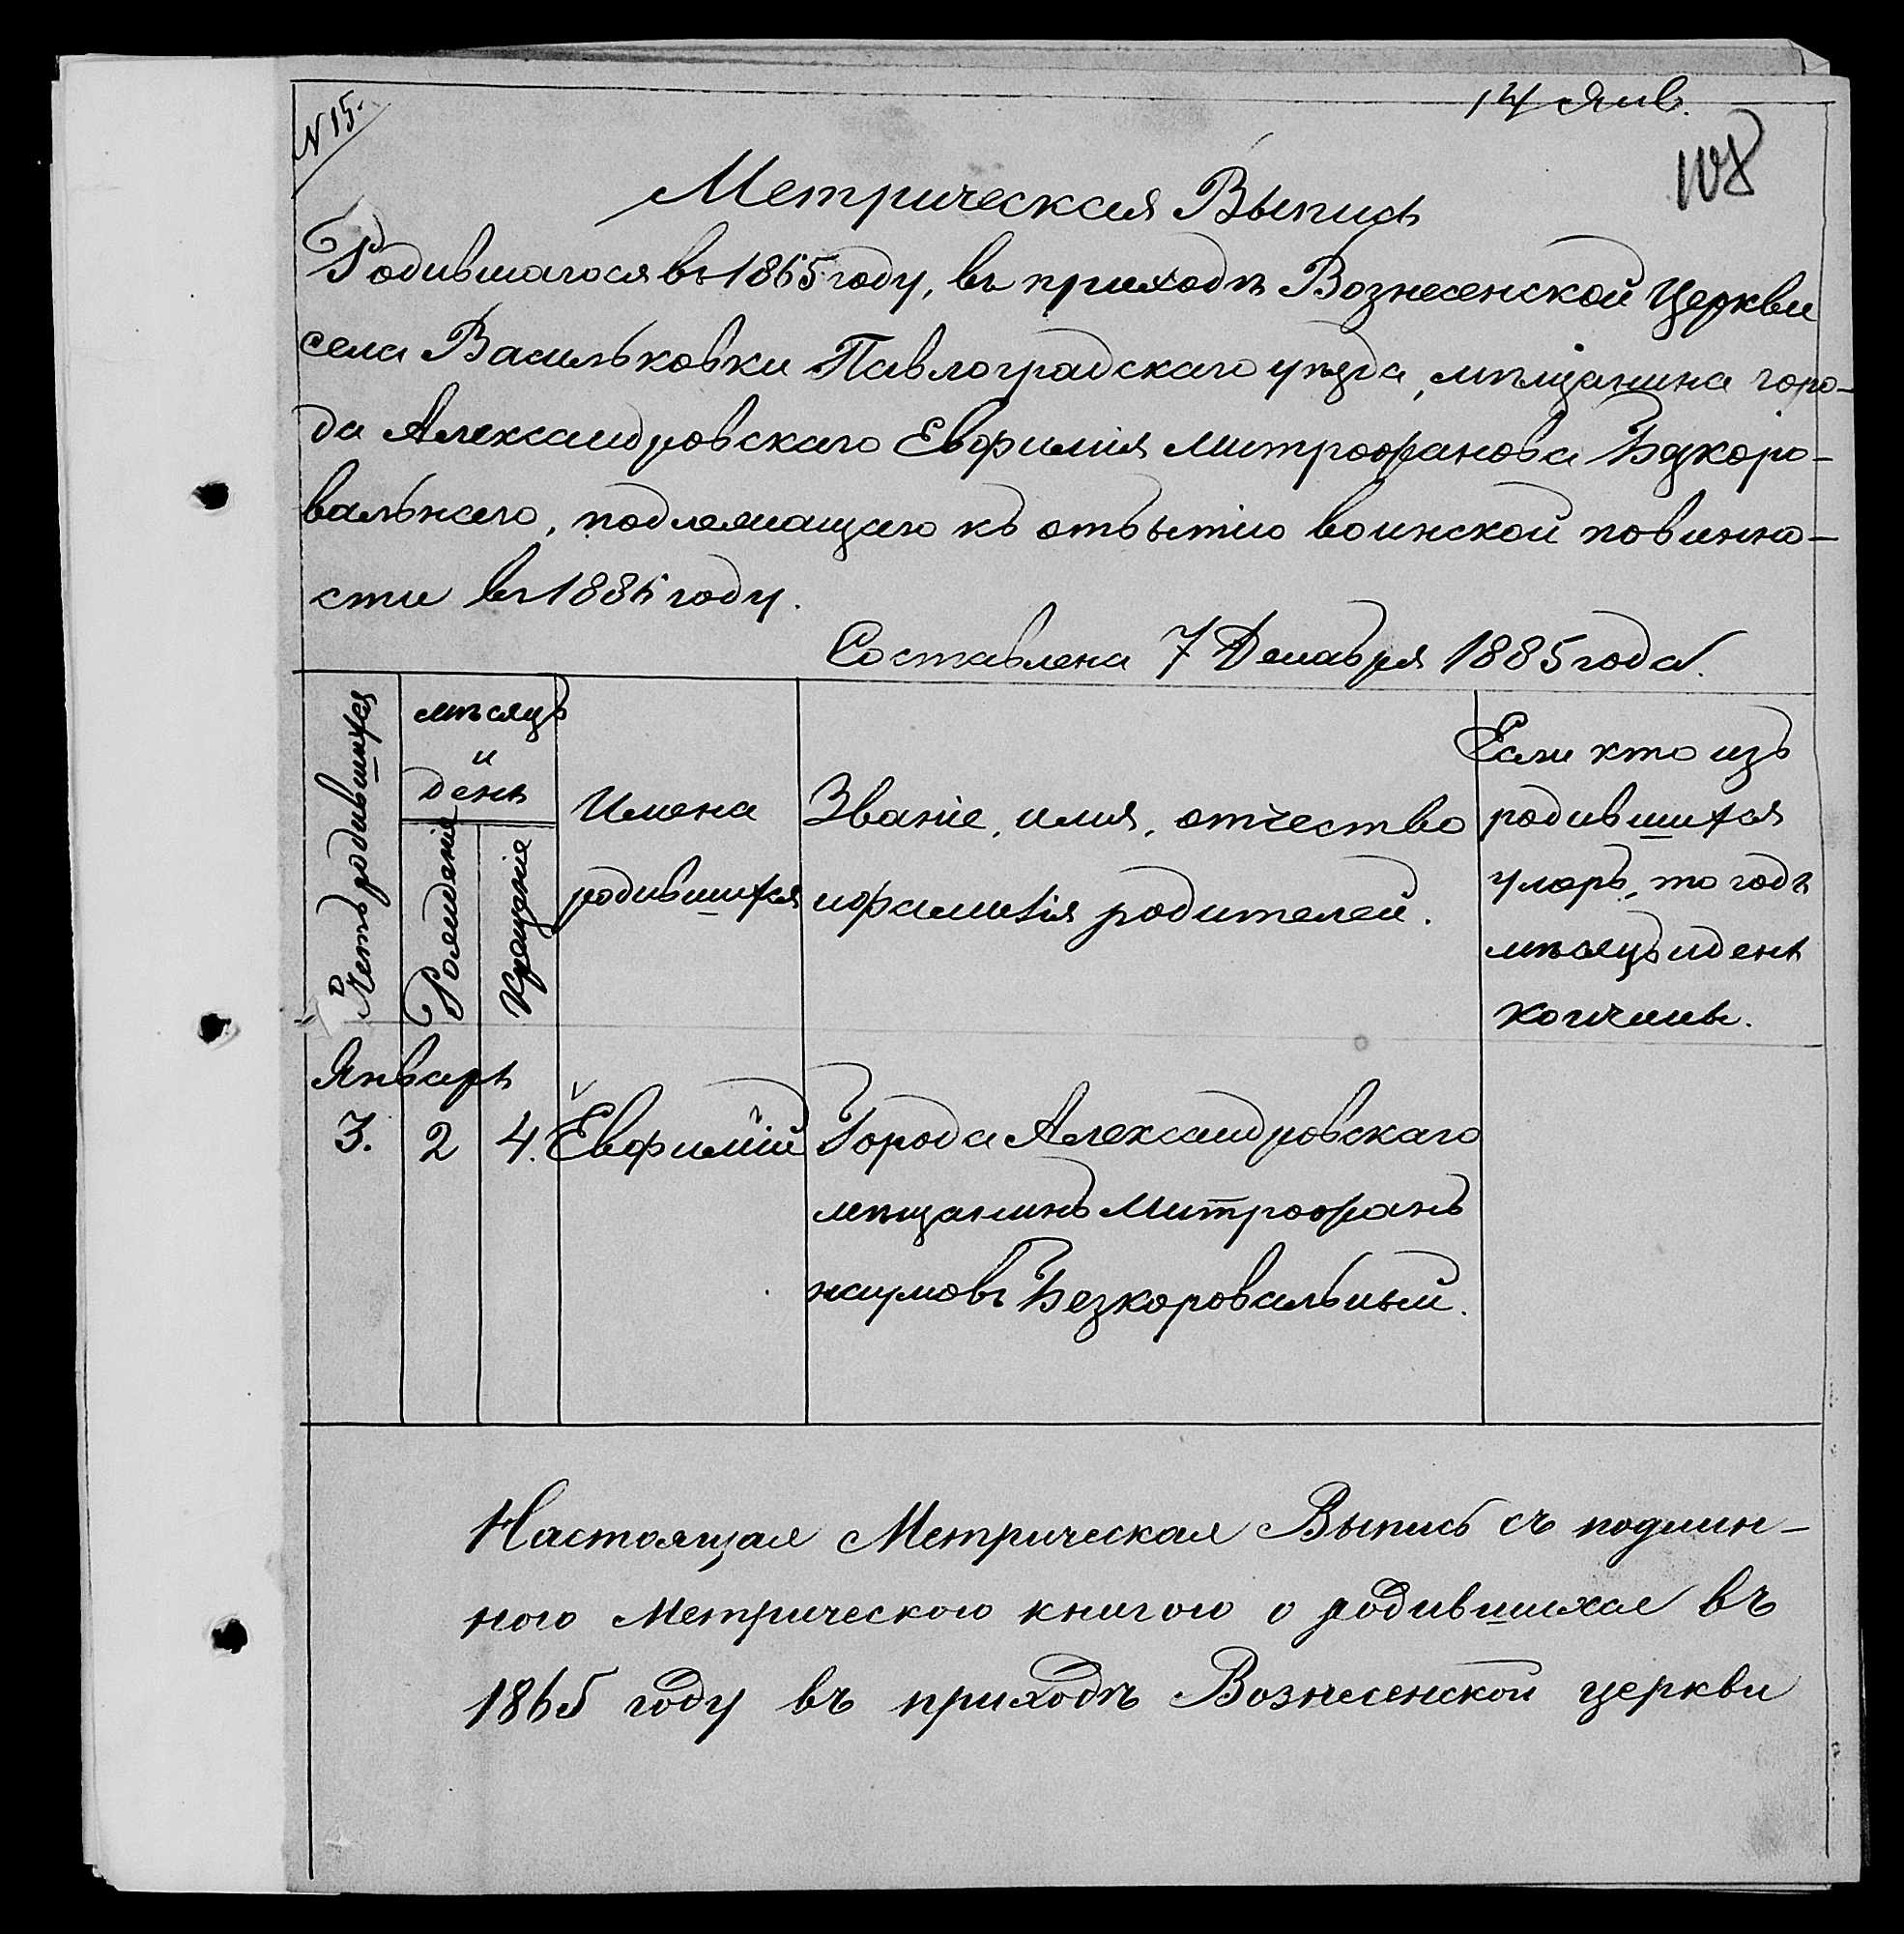 14 Янв.
N 15.
108
Метрическая Выпись
Родившагося въ 1865 году, въ приходѣ Вознесенской Церкви
села Васильковки Павлоградскаго уѣзда, мѣщанина горо-
да Александровскаго Евфимія Митрофанова Безкоро-
вальнаго, подлежащаго къ отбытію воинской повинно-
сти въ 1886 году.
Составлена 7 Декабря 1885 года.
Счетъ родившихся
мѣсяцъ
и
день
Рожденіе
Крещеніе
Имена
родившихся
Званіе, имя, отчество
и фамилія родителей.
Если кто изъ
родившихся
умеръ, то годъ
мѣсяцъ и день
кончины.
Январь
3.
2
4.
Евфимій
Города Александровскаго
мѣщанинъ Митрофанъ
Наумовъ Безкоровальный.
Настоящая Метрическая Выпись съ подлин-
ною Метрическою книгою о родившихся въ
1865 году въ приходѣ Вознесенской церкви